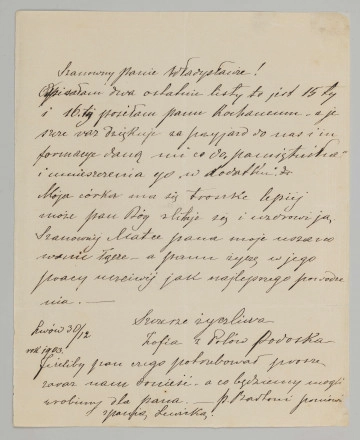 Szanowny Panie Władysławie!
Opisałam dwa ostatnie listy to jest 15 ty
i 16.ty posiłam panu Kochanemu, a je
szcze raz dziękuję za przyjazd do nas i in
formacye daną mi co do „pamiętnika"
i umieszczenia go w dodatku. do
Moja córka ma się troszkę lepiej
może pan Bóg zlituje się i uzdrowi ją,
Szanownej Matce pana moje uszano
wanie łączę - a panu życzę w jego
pracy uczciwej jak najlepszego powodze
nia. —
Szczerze życzliwa
Lwów 30/12
Zofia z Polów Podoska
rok 1903.
Jeśliby pan czego potrzebował proszę
zaraz nam donieść - a co będziemy mogli
zrobimy dla pana. — p.